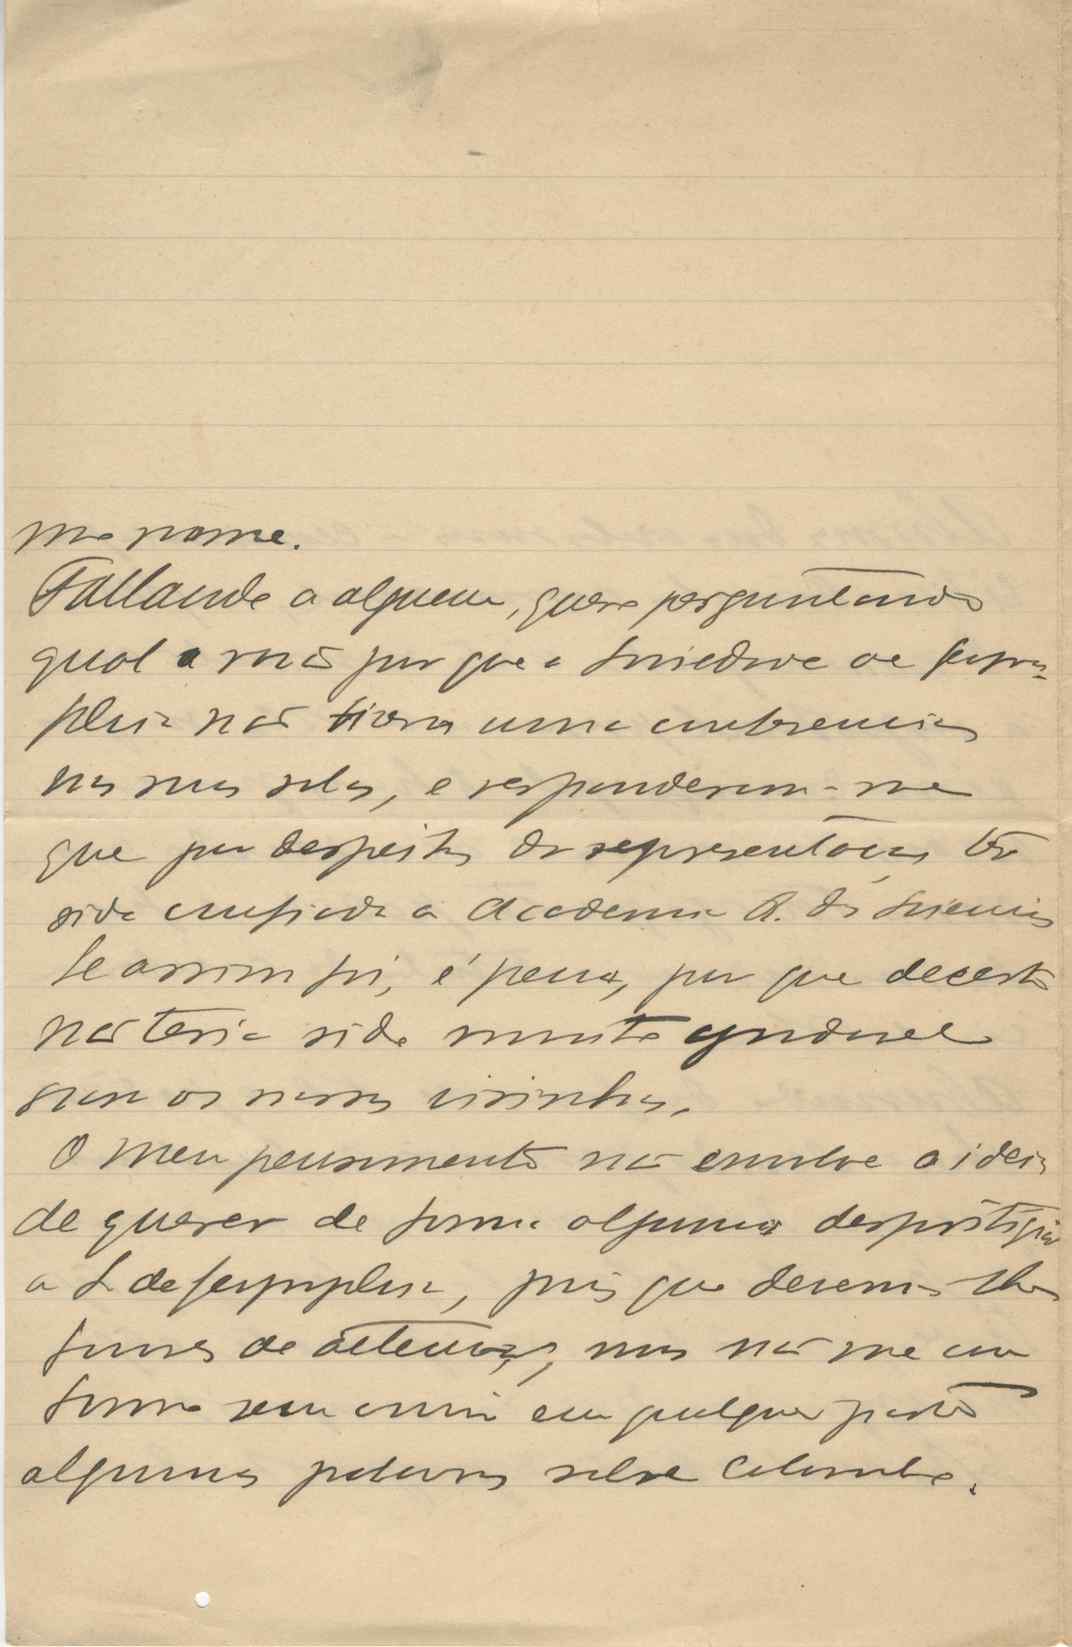 mo nome.
Fallando a alguem, quero perguntando
qual a rasã por que a Sociedade de Geogra-
phia nã tivera uma conferencia
nas suas salas, e responderam-me
que por despeito da representaçaõ ter
sido confiada a Academia R. das Sciencias
Se assim foi, é pena, por que decerto
nã teria sido muito agradavel
para os nossos visinhos.
O meu pensamento nã envolve a ideia
de querer de forma alguma desprestigiar
a S. de Geographia, pois que devemos-lhe
de attençaõ, mas nã me con
formo sem ouvir em qualquer parte
algumas palavras sobre Colombo.